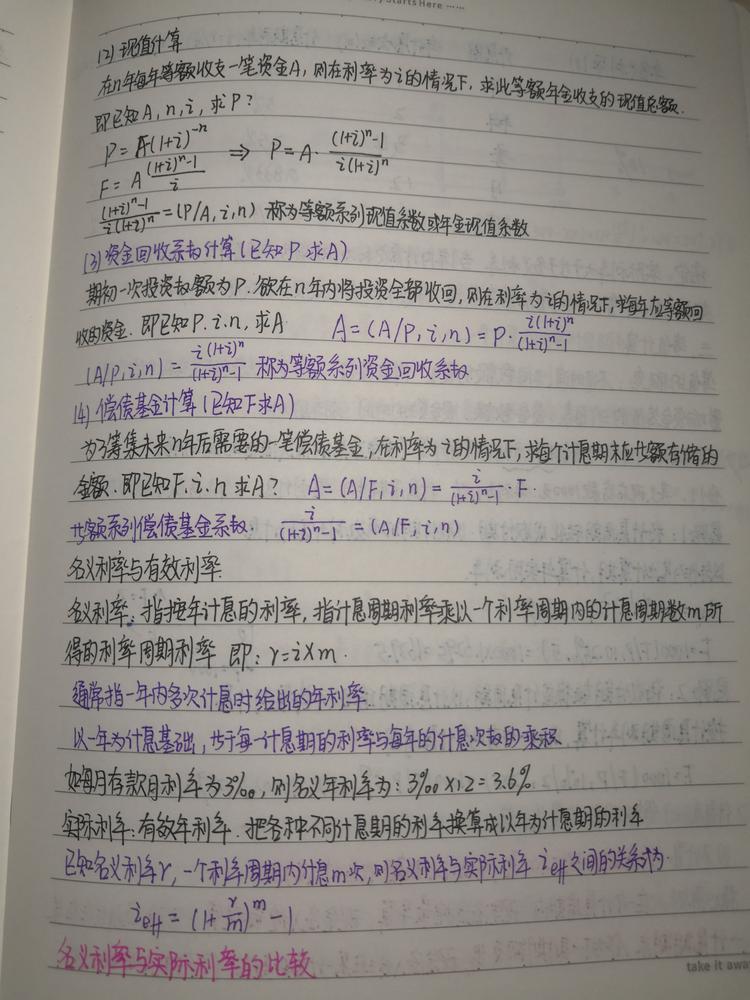 Starts Here ……
(2) 现值计算
在n年每年等额收支一笔资金A，则在利率为i的情况下，求此等额年金收支的现值总额.
即已知A, n, i, 求P?
P = F(1+i)^-n ⇒ P = A · ((1+i)^n-1)/(i(1+i)^n)
F = A ((1+i)^n-1)/i
((1+i)^n-1)/(i(1+i)^n) = (P/A, i, n) 称为等额系列现值系数或年金现值系数
(3) 资金回收系数计算(已知P求A)
期初一次投资数额为P. 欲在n年内将投资全部收回，则在利率为i的情况下，求每年应等额回
收的资金. 即已知P. i. n, 求A. A = (A/P, i, n) = P · (i(1+i)^n)/((1+i)^n-1)
(A/P, i, n) = (i(1+i)^n)/((1+i)^n-1) 称为等额系列资金回收系数
(4) 偿债基金计算(已知F求A)
为了筹集未来n年后需要的一笔偿债基金，在利率为i的情况下，求每个计息期末应等额存储的
金额. 即已知F. i. n 求A? A = (A/F, i, n) = i/((1+i)^n-1) · F.
等额系列偿债基金系数. i/((1+i)^n-1) = (A/F, i, n)
名义利率与有效利率.
名义利率: 指按年计息的利率，指计息周期利率乘以一个利率周期内的计息周期数m所
得的利率周期利率 即: r = i×m.
通常指一年内多次计息时给出的年利率
以一年为计息基础，等于每一计息期的利率与每年的计息次数的乘积
如每月存款月利率为3‰, 则名义年利率为: 3‰×12=3.6%
实际利率: 有效年利率. 把各种不同计息期的利率换算成以年为计息期的利率
已知名义利率r, 一个利率周期内计息m次, 则名义利率与实际利率 i_eff 之间的关系式为.
i_eff = (1+r/m)^m - 1
名义利率与实际利率的比较
take it away